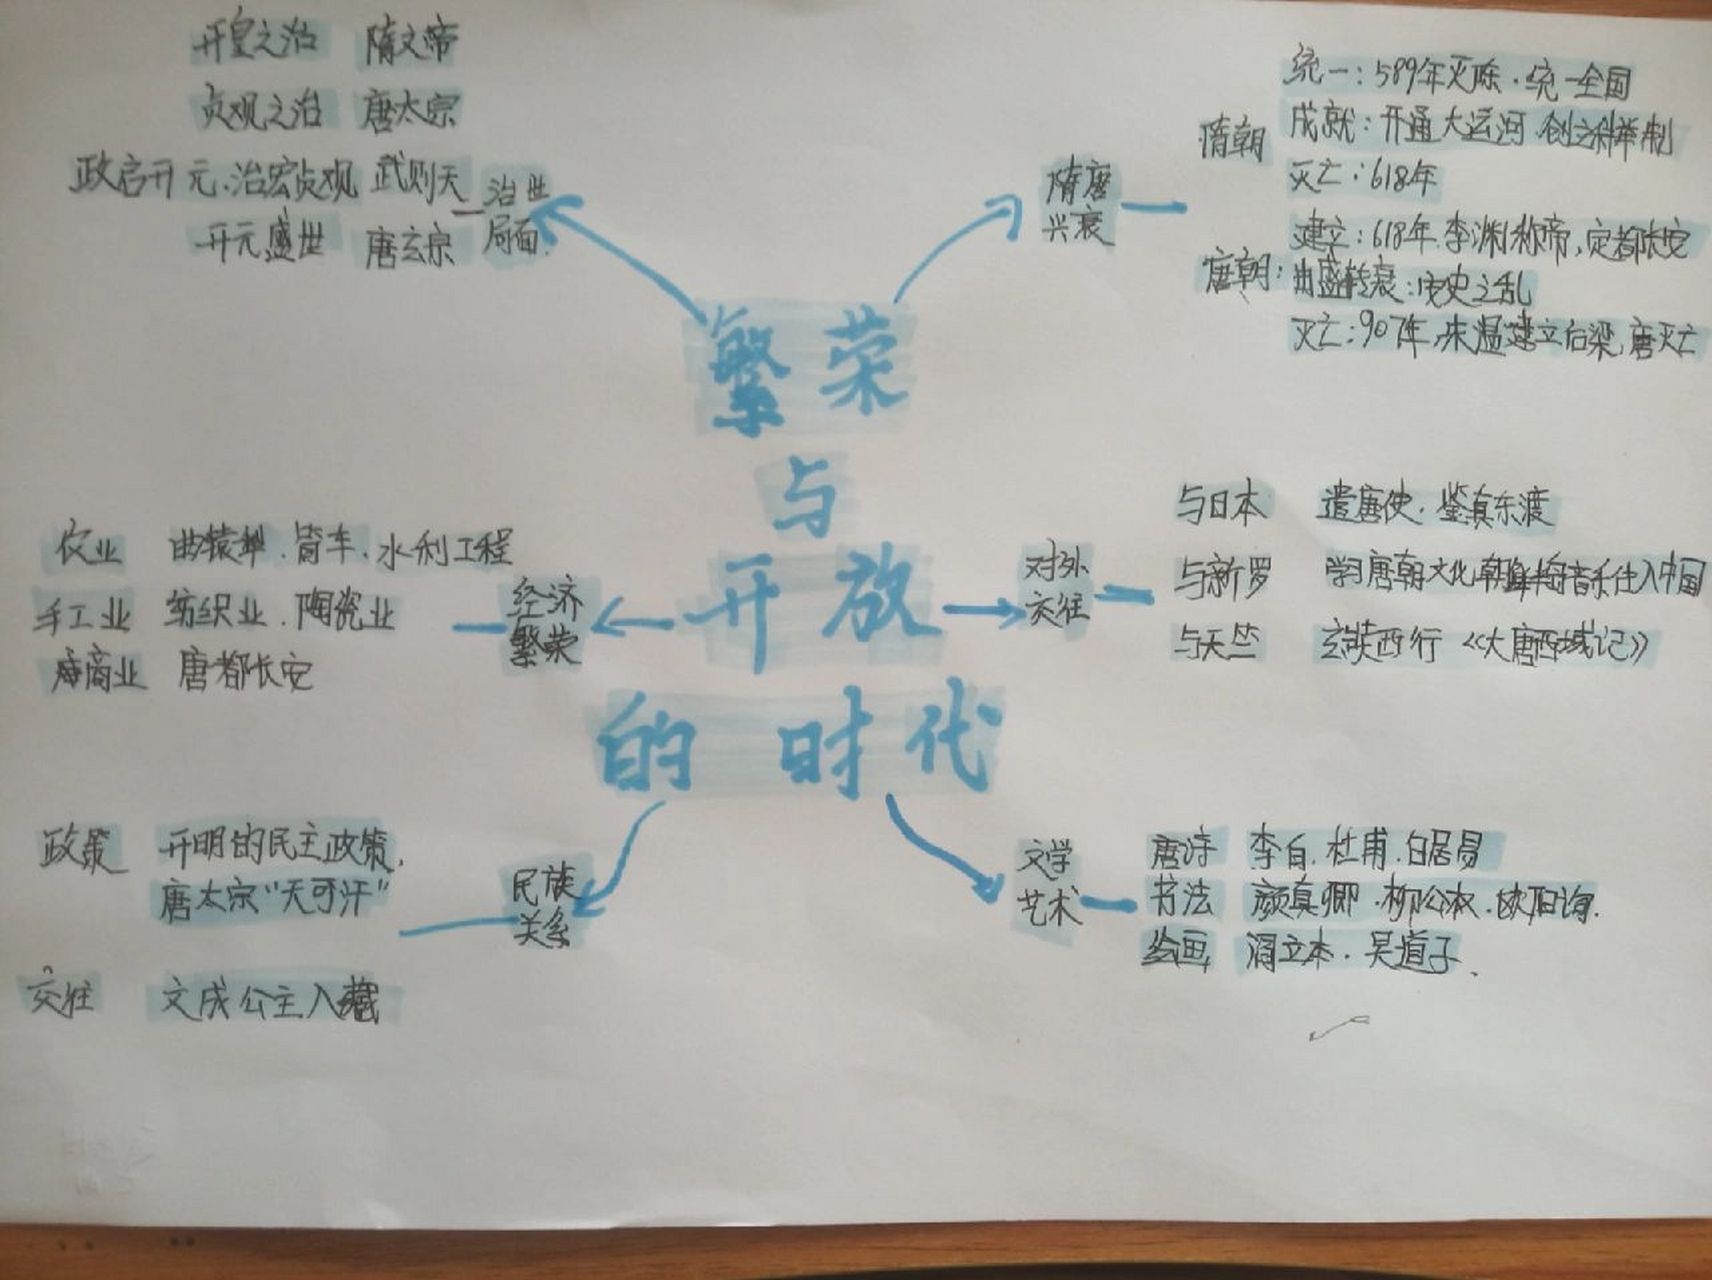 繁荣
与
开放
的时代
治世
局面
开皇之治 隋文帝
贞观之治 唐太宗
政启开元.治宏贞观 武则天
开元盛世 唐玄宗
隋唐
兴衰
隋朝
统一:589年灭陈.统一全国
成就:开通大运河 创立科举制
灭亡:618年
唐朝:
建立:618年.李渊称帝,定都长安
由盛转衰:安史之乱
灭亡:907年,朱温建立后梁,唐灭亡
经济
繁荣
农业 曲辕犁.筒车.水利工程
手工业 纺织业.陶瓷业
商业 唐都长安
对外
交往
与日本 遣唐使.鉴真东渡
与新罗 学习唐朝文化 音乐传入中国
与天竺 玄奘西行《大唐西域记》
民族
关系
政策 开明的民主政策,
唐太宗“天可汗”
交往 文成公主入藏
文学
艺术
唐诗 李白.杜甫.白居易
书法 颜真卿.柳公权.欧阳询.
绘画 阎立本.吴道子.